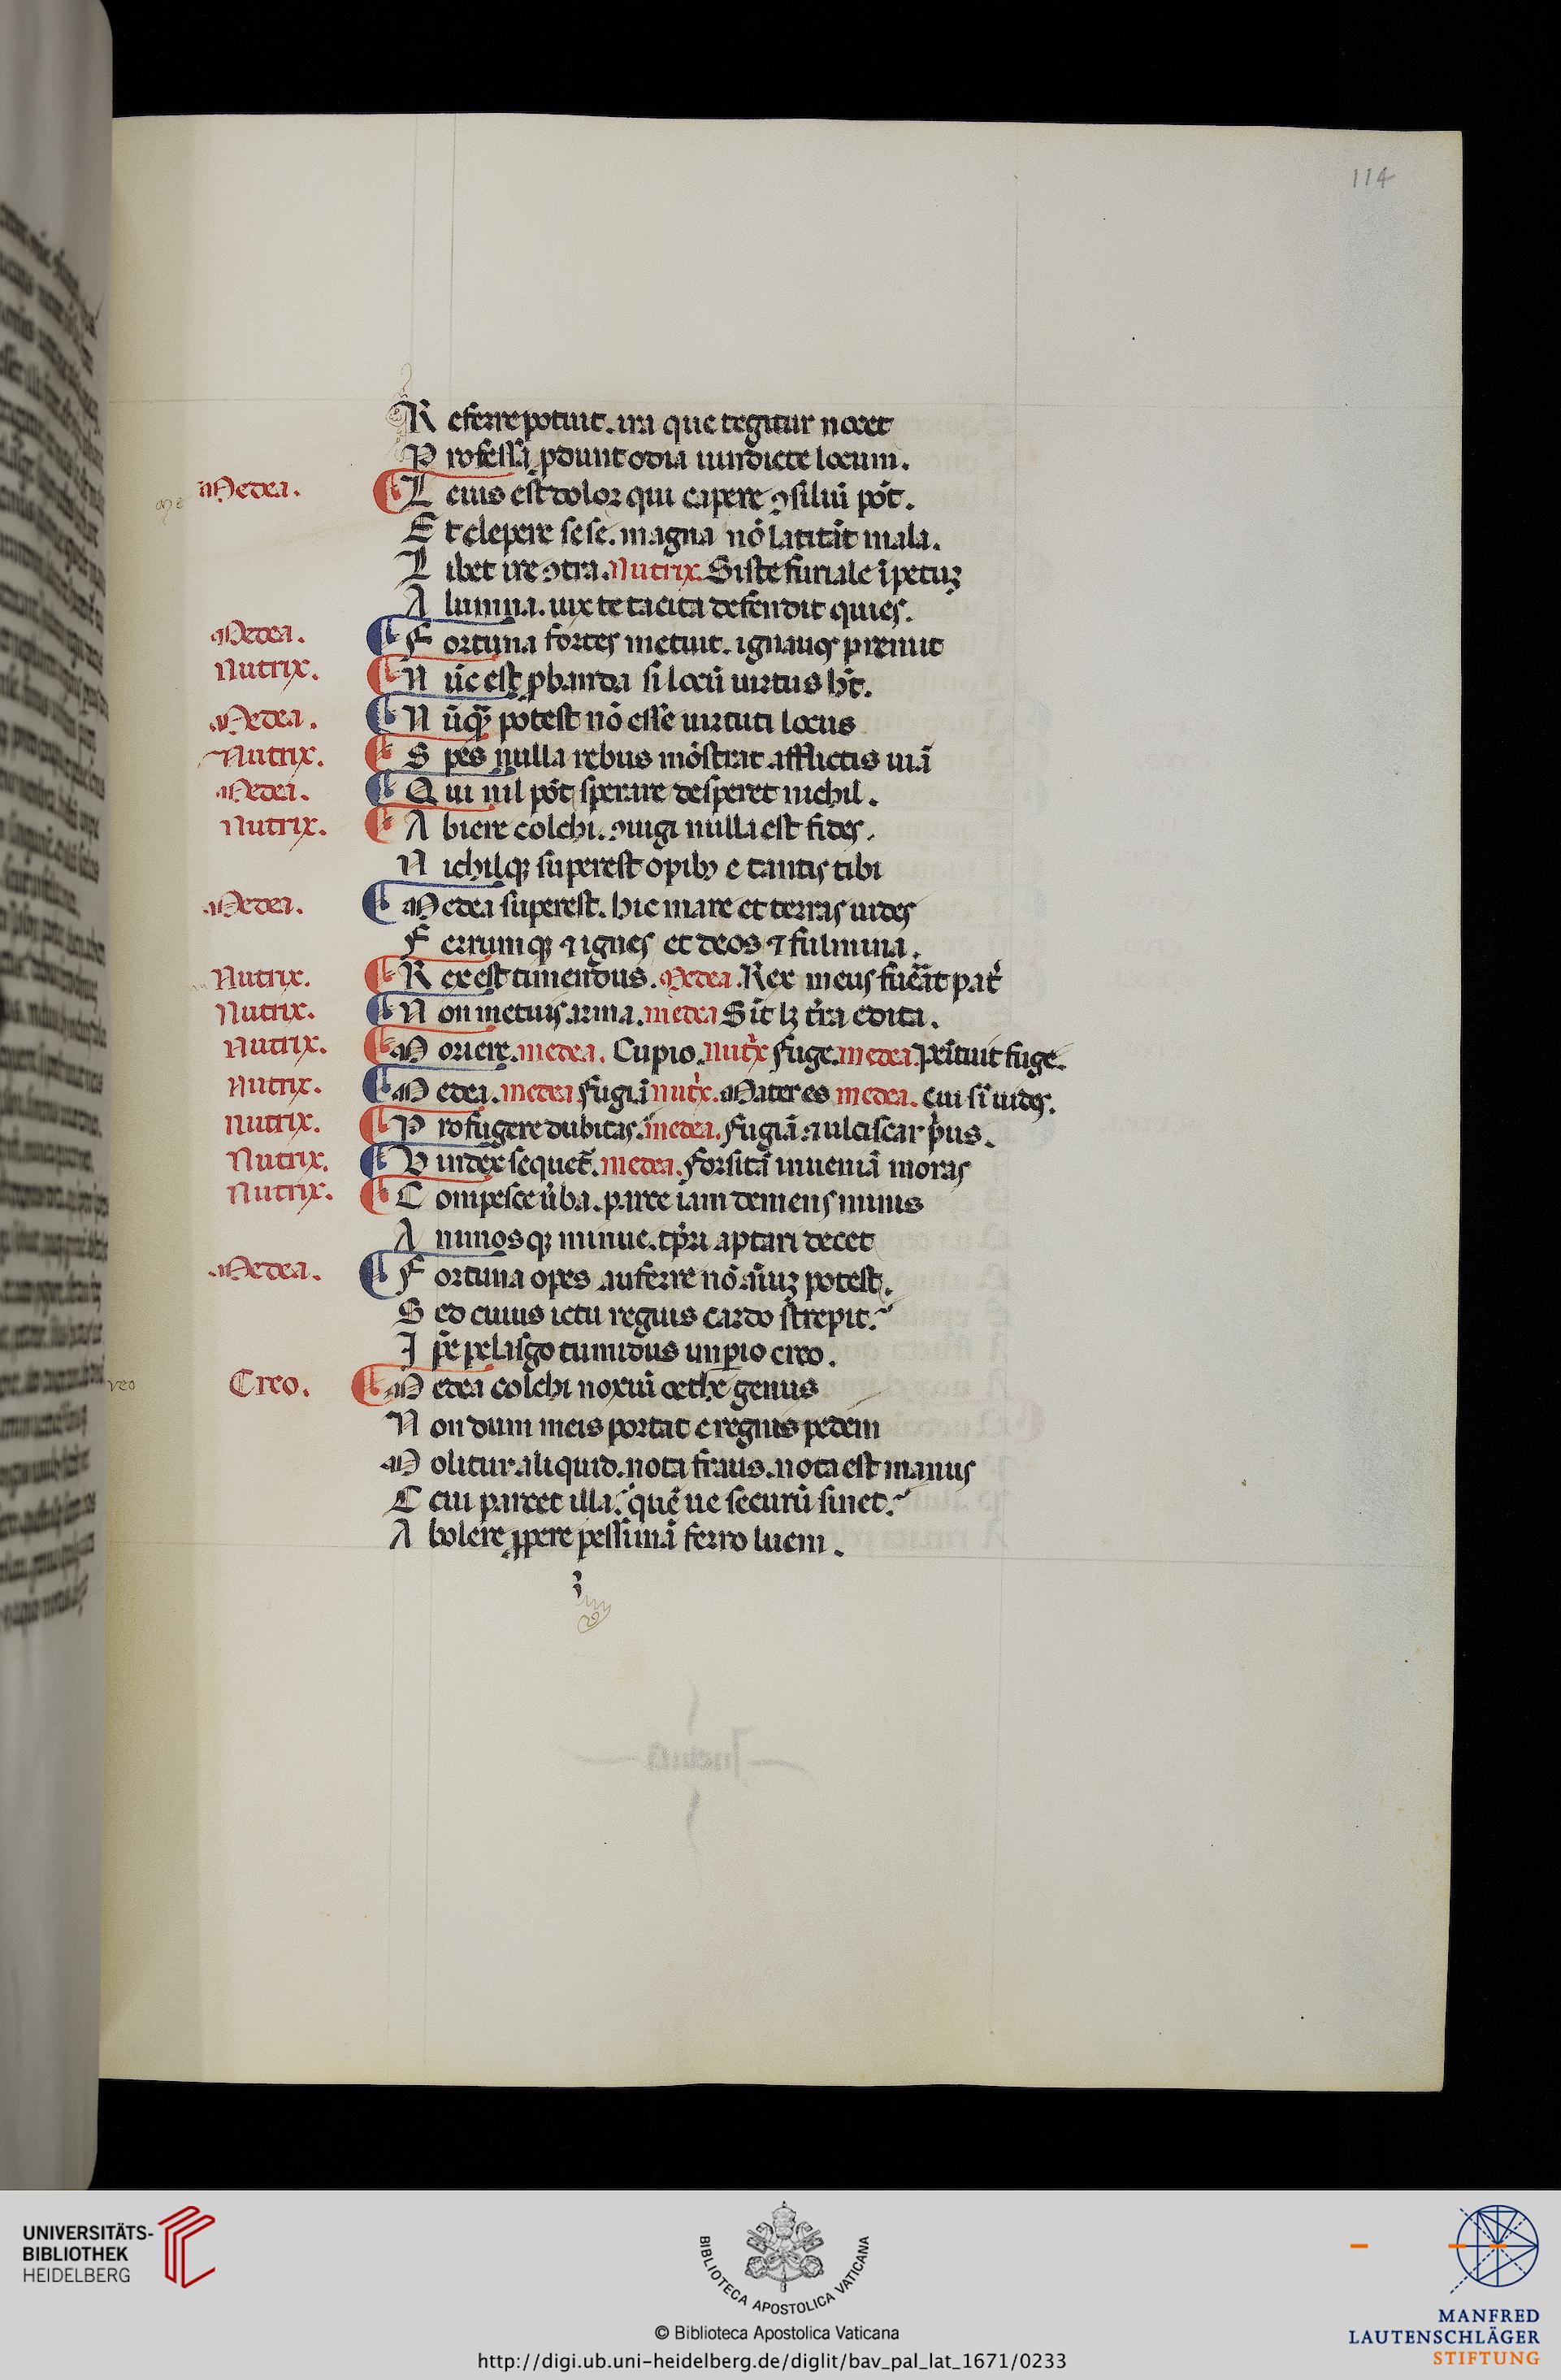 114
R eferre potuit. ira que tegitur nocet
P rofessa ꝑdunt odia uindicte locum.
Medea. L euis est dolor qui capere ꝯsiliū pōt.
E t clepere sese. magna nō latitāt mala.
L ibet ire ꝯtra. Nutrix. Siste furiale īpetuꝫ
A lumna. uix te tacita defendit quies.
Medea. F ortuna fortes metuit. ignauos premit
Nutrix. N ūc est ꝓbanda si locū uirtus hꝫ̄.
Medea. N ūqꝫ potest nō esse uirtuti locus
Nutrix. S pes nulla rebus mōstrat afflictis uiā
Medea. Q ui nil pōt sperare desperet nichil.
Nutrix. A biere colchi. ꝯiugi nulla est fides.
N ichilqꝫ superest opibꝫ e tantis tibi
Medea. M edea superest. hic mare et terras uides
F errumqꝫ ⁊ ignes et deos ⁊ fulmina.
Nutrix. R ex est timendus. Medea. Rex meus fuāt pat̄
Nutrix. N on metuis arma. medea Sīt lꝫ t̄ra edita.
Nutrix. M oriere. medea. Cupio. nut̄x fuge. medea. penituit fuge.
Nutrix. M edea. medea fugiā nut̄x. Mater es medea. cui sī uides.
Nutrix. P rofugere dubitas. medea. fugiā. ⁊ ulciscar p̄us.
Nutrix. V index sequet̄. medea. forsitā inueniā moras
Nutrix. C ompesce ūba. parce iam demens minis
A nimosqꝫ minue. tp̄ri aptari decet
Medea. F ortuna opes auferre nō aīuꝫ potest.
S ed cuius ictu regius cardo strepit.
I pē pelasgo tumidus imꝑio creo.
Creo. M edea colchi noxiū oethe genus
N on dum meis portat e regnis pedem
M olitur aliquid. nota fraus. nota est manus
C cui parcet illa. quē ue securū sinet.
A bolere ꝓpere pessimā ferro luem.
UNIVERSITÄTS-
BIBLIOTHEK
HEIDELBERG
BIBLIOTECA APOSTOLICA VATICANA
© Biblioteca Apostolica Vaticana
http://digi.ub.uni-heidelberg.de/diglit/bav_pal_lat_1671/0233
MANFRED
LAUTENSCHLÄGER
STIFTUNG